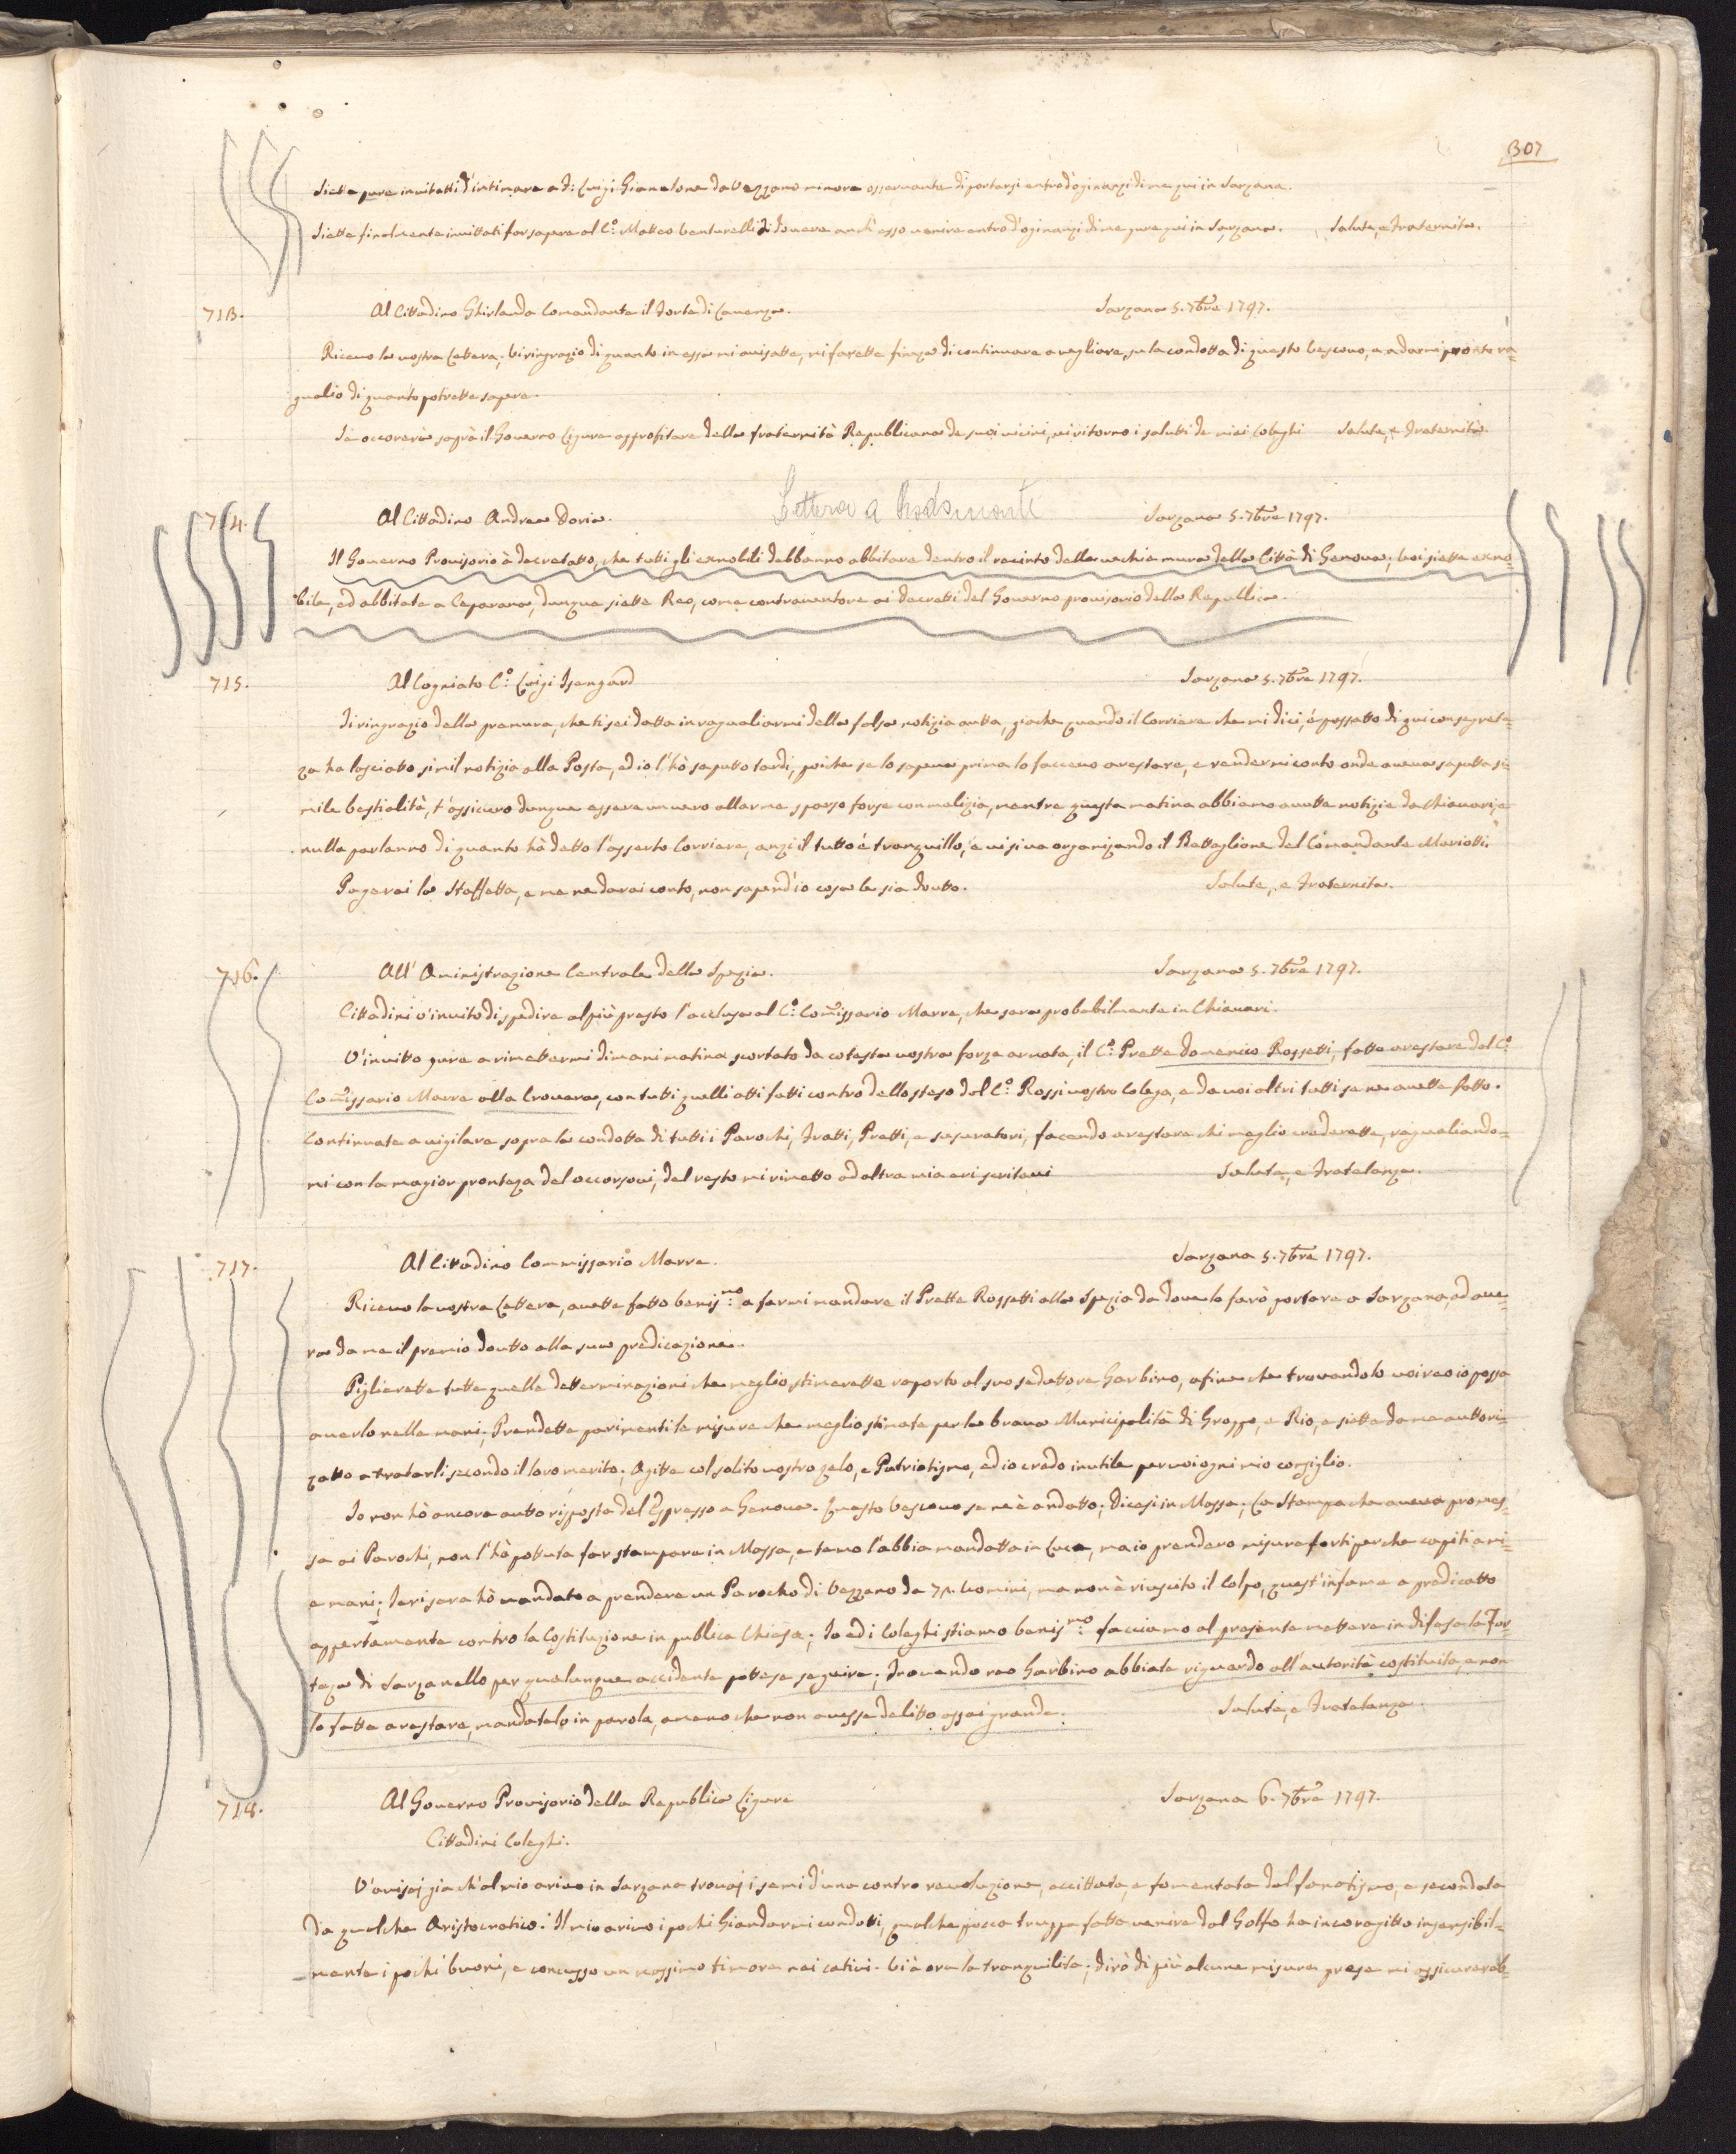 307
Siette pure invitatti d'intimare a di Luigi Gianelone da Vezzano minore osservante di portarsi entro d'ogi nanzi di me qui in Sarzana.
Siette finalmente invittati far sapere al C.º Matteo Venturelli di dovere anch'esso venire entro d'ogi nanzi di me pure qui in Sarzana. Salute, e Fraternita.
713. Al Cittadino Ghirlanda Comandante il Forte di Lavenza. Sarzana 5. 7bre 1797.
Ricevo la vostra Lettera; vi ringrazio di quanto in essa mi avisatte, mi farette finezza di continuare a vegliare su la condotta di questo Vescovo, e a darmi pronto ra=
gualio di quanto potrette sapere.
Se occorerà saprà il Governo Ligure approfitare della fraternità Republicana de suoi vicini, vi ritorno i saluti de miei Coleghi Salute, e Fraternità.
714. Al Cittadino Andrea Doria. Lettera a Sarzana 5. 7bre 1797.
Il Governo Provisorio à decretatto, che tutti gli exnobili debbanno abbitare dentro il recinto delle vechie mura della Città di Genova; voi siette exno=
bile, ed abbitate a Ceparana, dunque siette Reo, come contraventore ai decretti del Governo provisorio della Republica.
715. Al Cogniato C.º Luigi Isengard Sarzana 5. 7bre 1797.
Ti ringrazio della premura, che ti sei datta in ragualiarmi della falsa notizia autta, giache quando il Corriere che mi dici, è passatto di qui con segrete=
za ha lasciatto simil notizia alla Posta, ed io l'hò saputto tardi, poiche se lo sapeva prima lo facevo arestare, e rendermi conto onde aveva saputta si=
mile bestialità, t'assicuro dunque essere un vero allarme sparso forse con malizia, mentre questa matina abbiamo avutte notizie da Chiavari, e
nulla parlanno di quanto hà detto l'asserto Corriere, anzi il tutto è tranquillo, e vi si va organizando il Battaglione del Comandante Mariotti.
Pagerai la Staffetta, e me ne darai conto, non sapend'io cosa le sia doutto. Salute, e Fraternita.
716. All' Aministrazione Centrale della Spezia. Sarzana 5. 7bre 1797.
Cittadini v'invito di spedire al più presto l'acclusa al C.º Comissario Marre, che sara probabilmente in Chiavari.
V'invitto pure a rimettermi dimani matina scortato da cotesta vostra forza armata, il C.º Prette Domenico Rossetti, fatto arestare dal C.º
Comissario Marre alla Crovara, con tutti quelli atti fatti contro dello steso dal C.º Rossi vostro Colega, e da voi altri tutti se ne avette fatto.
Continuate a vigilare sopra la condotta di tutti i Parochi, Fratti, Pretti, e susuratori, facendo arestare chi meglio crederette, ragualiando=
mi con la magior prontezza del occorsovi, del resto mi rimetto ad altra mia eri scritavi Salute, e Fratelanza.
717. Al Cittadino Commissario Marre. Sarzana 5. 7bre 1797.
Ricevo la vostra Lettera, avette fatto benis.mo a farmi mandare il Prette Rossetti alla Spezia da dove lo farò portare a Sarzana, ed ave=
rà da me il premio doutto alla sua predicazione.
Piglierette tutte quelle detterminazioni che meglio stimerette raporto al suo seduttore Garbino, afine che trovandolo voi reo io possa
averlo nelle mani; Prendette parimenti le misure che meglio stimate per la brava Municipalità di Groppo, e Rio, e siette da me auttori=
zatto a tratarli secondo il loro merito; Agitte col solito vostro zelo, e Patriotismo, ed io credo inutile per voi ogni mio consiglio.
Io non hò ancora autto risposta del Espresso a Genova. Questo Vescovo se ne è andatto, dicesi in Massa; La Stampa che aveva promes=
sa ai Parochi, non l'hà pottuta far stampare in Massa, e temo l'abbia mandatta in Luca, ma io prendero misure forti perche capiti a mi=
e mani; Jeri sera hò mandato a prendere un Parocho di Vezzano da 74. Uomini, ma non è riuscito il Colpo, quest'infame a predicatto
appertamente contro la Costituzione in publica Chiesa; Io ed i Coleghi stiamo benis.mo facciamo al presente mettere in difesa la For=
teza di Sarzanello per qualunque accidente pottese seguire; Trovando reo Garbino abbiate riguardo all'autorità costituita, e non
lo fatte arestare, mandatelo in parola, ameno che non avesse delitto assai grande. Salute, e Fratelanza
718. Al Governo Provisorio della Republica Ligure Sarzana 6. 7bre 1797.
Cittadini Coleghi.
V'avisai gia ch'al mio arivo in Sarzana trovai i semi d'una contro revoluzione, eccittata, e fomentata dal fanatismo, e secondata
da qualche Aristocratico. Il mio arivo i pochi Giandarmi condotti, qualche pocca truppa fatta venire dal Golfo ha incoragitto insensibil=
mente i pochi buoni, e concusso un massimo timore nei cativi. Vi è ora la tranquilità; dirò di più alcune misure prese mi assicurareb=